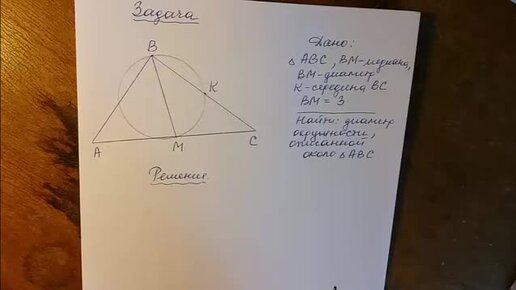 Задача
B
K
A
M
C
Решение
Дано:
△ ABC, BM-медиана,
BM-диаметр
K-середина BC
BM = 3
Найти: диаметр
окружности,
описанной
около △ ABC